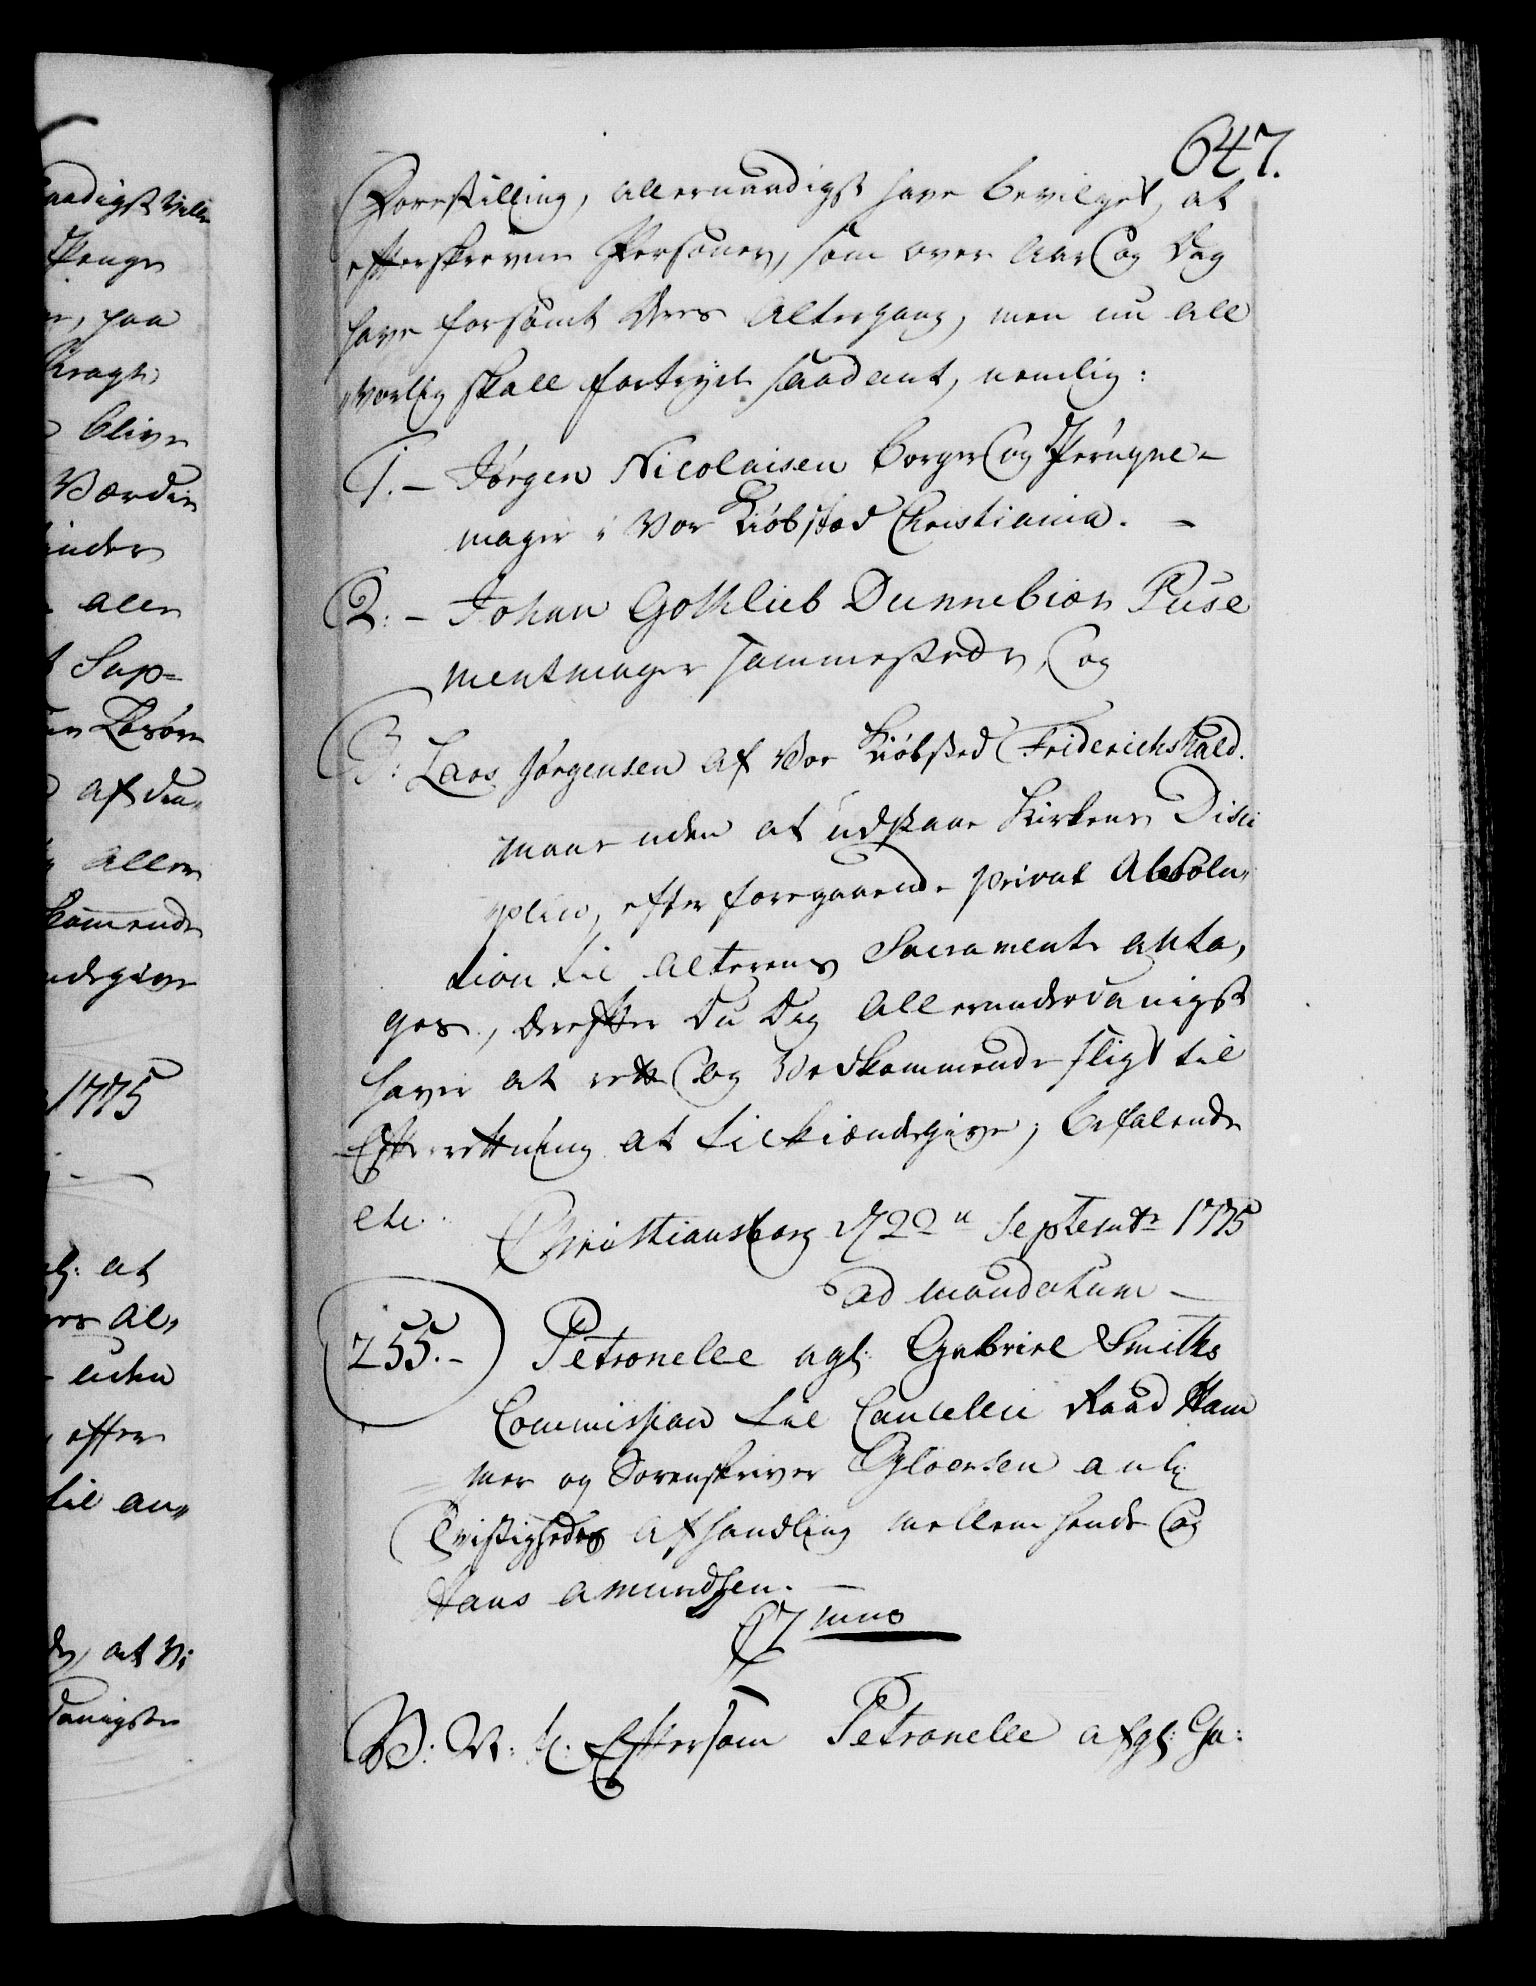 647.
Forestilling, allernaadigst have bevilget, at
efterskrevne Personer, som over Aar og Dag
have forsømt deres Altergang, men nu all
vorlig skall fortryde saadant, nemlig:
1. – Jørgen Nicolaisen borger og Perùqve-
mager i Vor Kiøbstæd Christiania. –
2. – Johan Gothlieb Dunnebier Puse
mentmager sammestæds, og
3: Lars Jørgensen af Vor Kiøbsted Friderichshald.
maae uden at udstaae Kirkens Disci
plin, efter foregaaende privat Absolu„
tion til Alterens Sacramente anta„
ges, derefter Du Dig allerunderdanigst
haver at rette og Vedkommende sligt til
Efterretning at tilkiendegive; befalende
etc. Christiansborg d 22n Septembr 1775
ad mandatum –
255. – Petronelle agl. Gabriel Smiths
Commission til Cancellie Raad Ham
mer og Sorenskriver Gloersen anl:
Tvistigheders Afhandling mellem hende og
Hans Amundsen. –
C7mus
W: V: t: Eftersom Petronelle afgl: Ga:
aadigst ville
Penge
paa
Kragh
blive
Værdie
inder
alle
Sup-
Løsøre
af den„
aller
kommende
ndegive
1775
at
Al„
uden
efter
til an„
at Vi
danigste